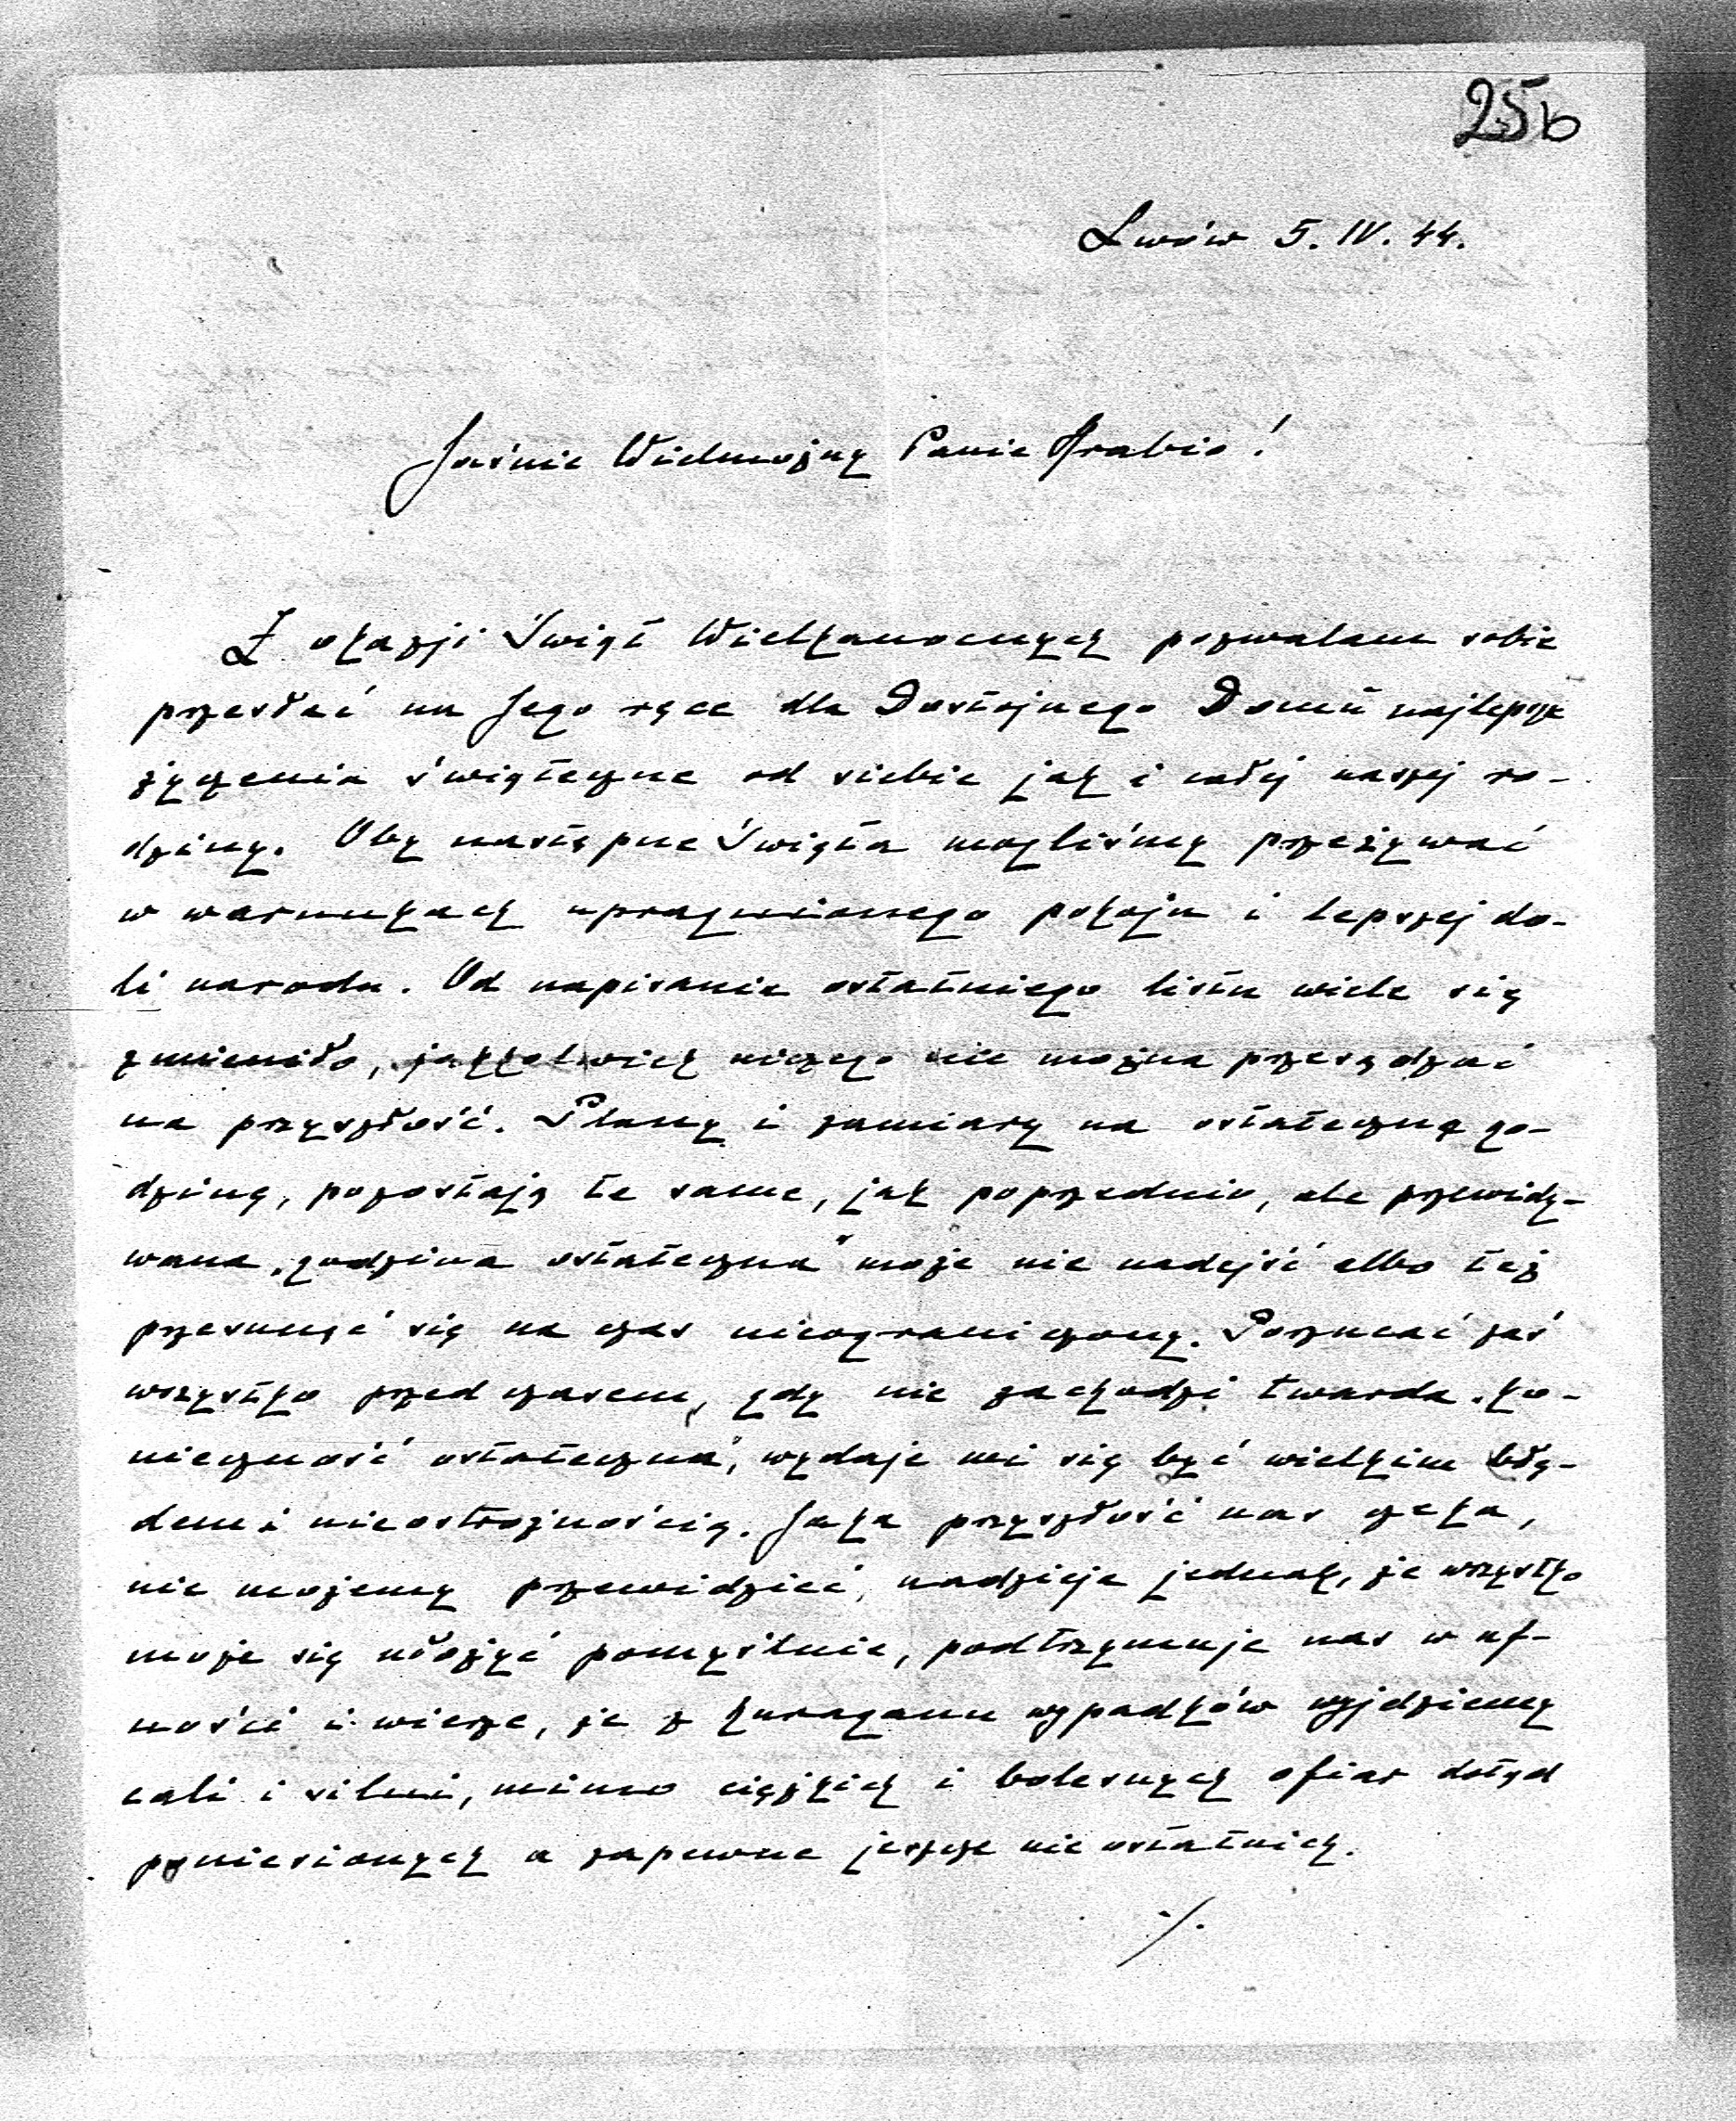 256
Lwów 5. IV. 44.
Jaśnie Wielmożny Panie Hrabio!
Z okazji Świąt Wielkanocnych pozwalam sobie
przesłać na Jego ręce dla Dostojnego Domu najlepsze
życzenia świąteczne od siebie jak i całej naszej ro-
dziny. Oby następne Święta mogliśmy przeżywać
w warunkach upragnionego pokoju i lepszej do-
li narodu. Od napisania ostatniego listu wiele się
zmieniło, jakkolwiek niczego nie można przesądzać
na przyszłość. Plany i zamiary na ostateczną go-
dzinę, pozostają te same, jak poprzednio, ale przewidy-
wana „godzina ostateczna" może nie nadejść albo też
przesunąć się na czas nieograniczony. Porzucać zaś
wszystko przed czasem, gdy nie zachodzi twarda „ko-
nieczność ostateczna", wydaje mi się być wielkim błę-
dem i nieostrożnością. Jaka przyszłość nas czeka,
nie możemy przewidzieć, nadzieja jednak, że wszystko
może się ułożyć pomyślnie, podtrzymuje nas w uf-
ności i wierze, że z huraganu wypadków wyjdziemy
cali i silni, mimo ciężkich i bolesnych ofiar dotąd
poniesionych a zapewne jeszcze nie ostatnich.
./.